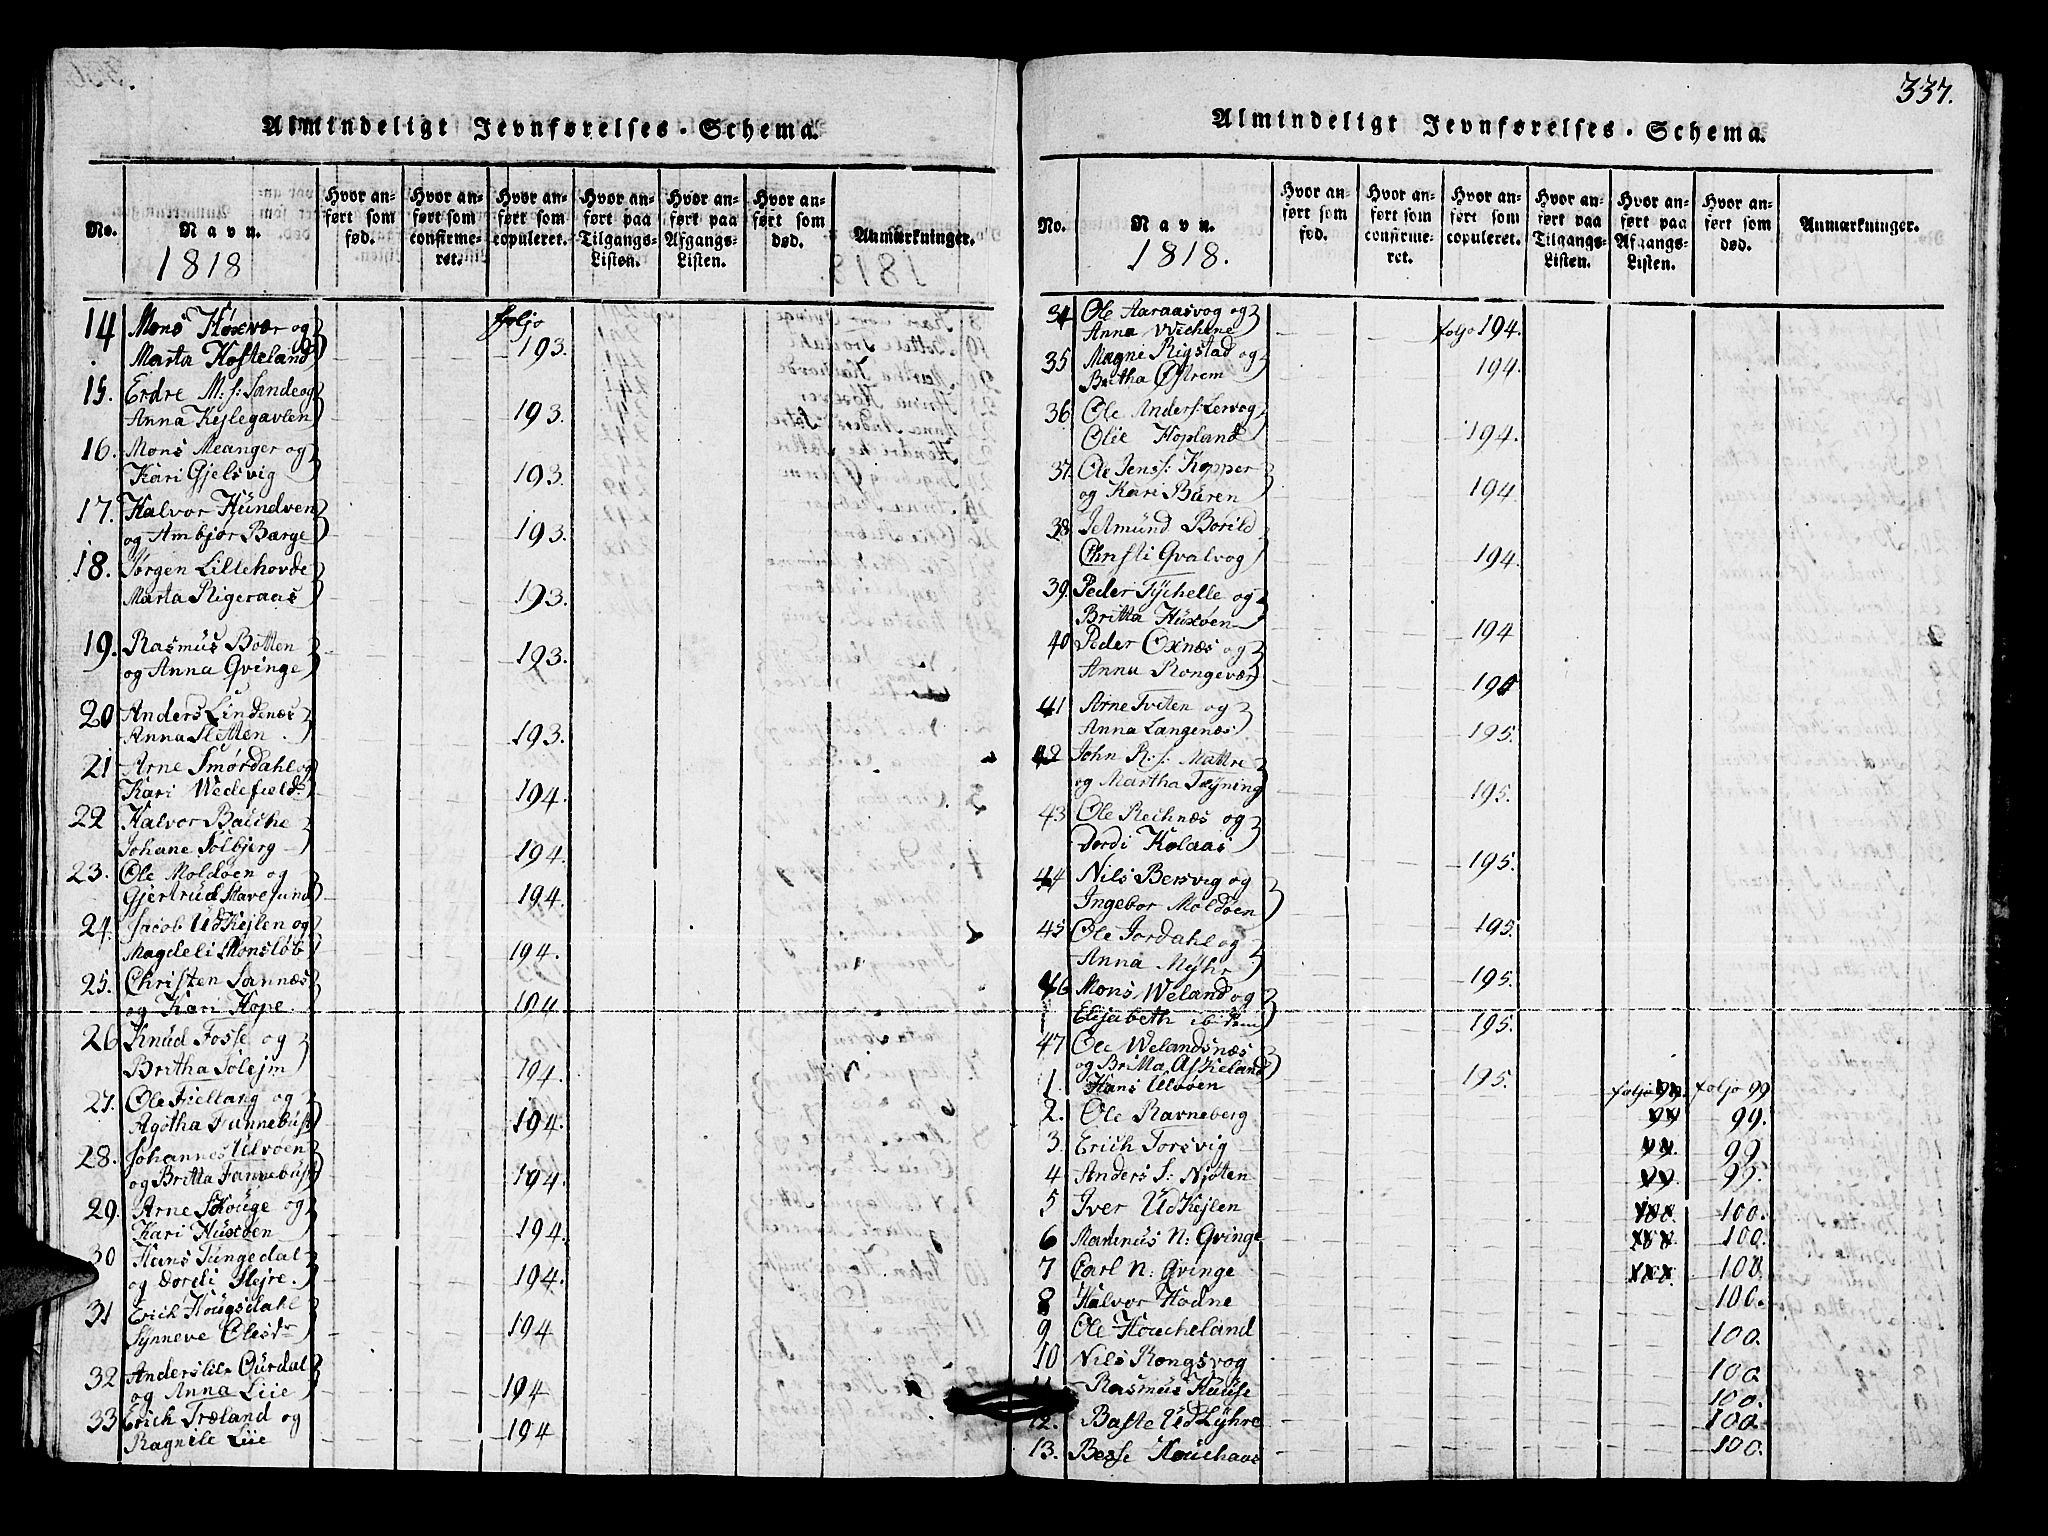 Almindeligt Jevnførelses-Schema.
No. Navn. 1818
Hvor anført som fød.
Hvor anført som confirmeret.
Hvor anført som copuleret.
Hvor anført paa Tilgangs-Listen.
Hvor anført paa Afgangs-Listen.
Hvor anført som død.
Anmærkninger.
14 Mons Hoxvær og foljo
Marta Hosteland 193.
15. Erdre M:s: Sande og
Anna Kejlegavlen 193.
16. Mons Meanger og
Kari Gjelsvig 193.
17. Halvor Hundven
og Ambjør Barge 193.
18. Jørgen Lillehovde
Marta Rigeraas 193.
19. Rasmus Botten
og Anna Qvinge 193.
20 Anders Lindenæs
Anna Sletten. 193.
21 Arne Smørdahl og
Kari Wedefield 194.
22 Halvor Baiche
Johane Solbjerg 194.
23. Ole Moldøen og
Gjertrud Stavesund 194.
24. Jacob Udkejlen og
Magdeli Monsløb 194.
25. Christen Sannæs
og Kari Hope. 194.
26 Knud Fosse og
Britha Solejm 194.
27. Ole Fieltang og
Agotha Funnebust 194.
28. Johannes Ulvøen
og Britta Fannebust 194.
29. Arne Skouge og
Kari Husøen 194.
30 Hans Tungedal
og Dordi Slejre. 194.
31 Erich Hougsdahl
Synneve Olesdr 194
32 Anders lil Ourdal
og Anna Liie 194
33 Erich Træland og
Ragnile Liie 194
337.
Almindeligt Jevnførelses-Schema.
No. Navn. 1818.
Hvor anført som fød.
Hvor anført som confirmeret.
Hvor anført som copuleret.
Hvor anført paa Tilgangs-Listen.
Hvor anført paa Afgangs-Listen.
Hvor anført som død.
Anmærkninger.
34 Ole Aaraasvog og
Anna Wichene foljo 194.
35 Magne Rigstad og
Britha Østrem 194.
36 Ole Anders: Lervog
Olie Hopland 194.
37. Ole Jens: Kopper
og Kari Buren 194
38 Jetmund Borild
Christi Qvalvog 194.
39. Peder Tychelle og
Britta Husøen 194
40 Peder Oxnæs og
Anna Rongevær
41 Arne Tveten og
Anna Langenæs 195.
42 John R: s: Mattre
og Martha Tejning 195.
43 Ole Rechnæs og
Dordi Kolaas 195.
44 Nils Bersvig og
Ingebor Moldøen 195.
45 Ole Jordahl og
Anna Myhr 195.
46 Mons Weland og
Elisabeth ibidem 195.
47 Ole Welandsnæs
og Britta Askeland 195.
1. Hans Ulvøen foljo foljo 99
2. Ole Ravneberg 99.
3. Erich Torsvig 99
4 Anders S: Njøten 99.
5 Iver Udkejlen 100.
6 Mammus N: Qvinge 100.
7 Carl N: Qvinge 100.
8 Halvor Hodne 100.
9 Ole Houcheland 100.
10 Nils Rongsvog 100
11 Rasmus Huuse 100.
12. Baste Udlyhre 100
13. Besse Houchaas 100.